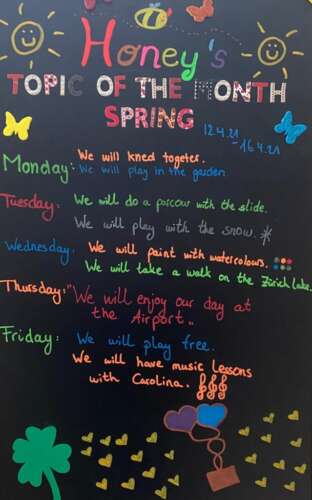 Honey's
TOPIC OF THE MONTH
SPRING
12.4.21
- 16.4.21
Monday: We will kned togeter.
We will play in the garden
Tuesday: We will do a parcour with the slide.
We will play with the snow.
Wednesday: We will paint with watercolours.
We will take a walk on the Zürich Lake.
Thursday: "We will enjoy our day at
the Airport."
Friday: We will play free.
We will have music lessons
with Carolina.